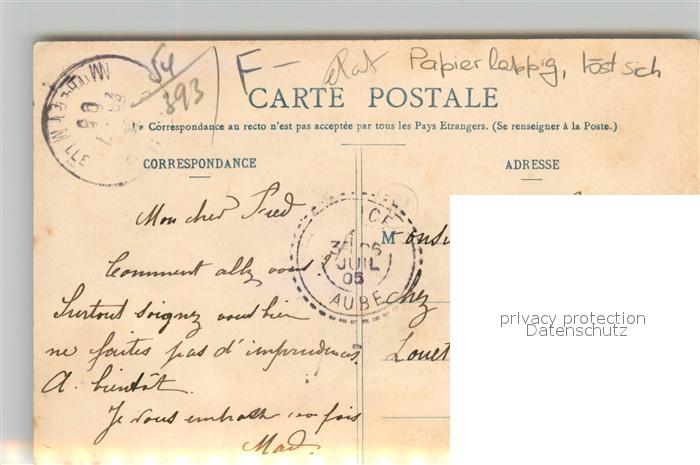 54/393 F- Papierlappig, löst sich
CARTE POSTALE
La Correspondance au recto n'est pas acceptée par tous les Pays Etrangers. (Se renseigner à la Poste.)
CORRESPONDANCE
ADRESSE
Mon cher Fred
Comment allez vous
Surtout soignez vous bien
ne faites pas d'imprudences.
A bientôt.
Je vous embrasse 100 fois
Mad.
JUIL
05
AUBE
chez
Louet
privacy protection
Datenschutz